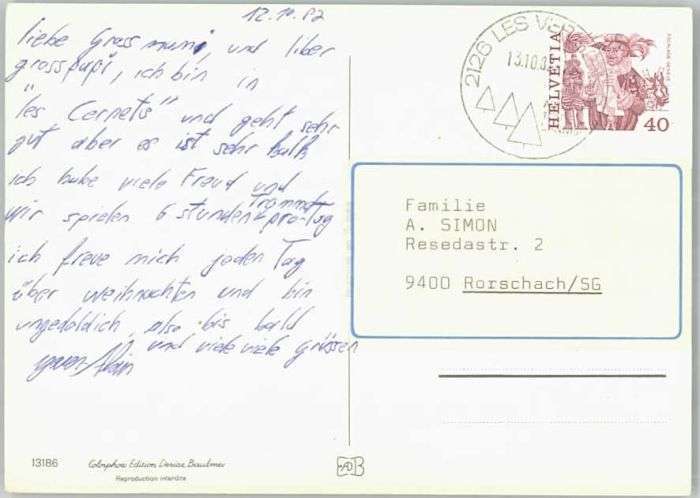 12.10.82
liebe Grossmumi, und liber
grosspapi, ich bin in
"les Cernets" und geht sehr
gut aber es ist sehr kalt
ich habe viele Freud und
wir spielen 6 stunden Trommel pro-Tag
ich freue mich jeden Tag
über weihnachten und bin
ungeduldich, also bis bald
und viele viele grüssen
2126 LES VER
13.10.8
HELVETIA
40
Familie
A. SIMON
Resedastr. 2
9400 Rorschach/SG
13186 Colorphoto Edition Denise Baulmer
Reproduction interdite